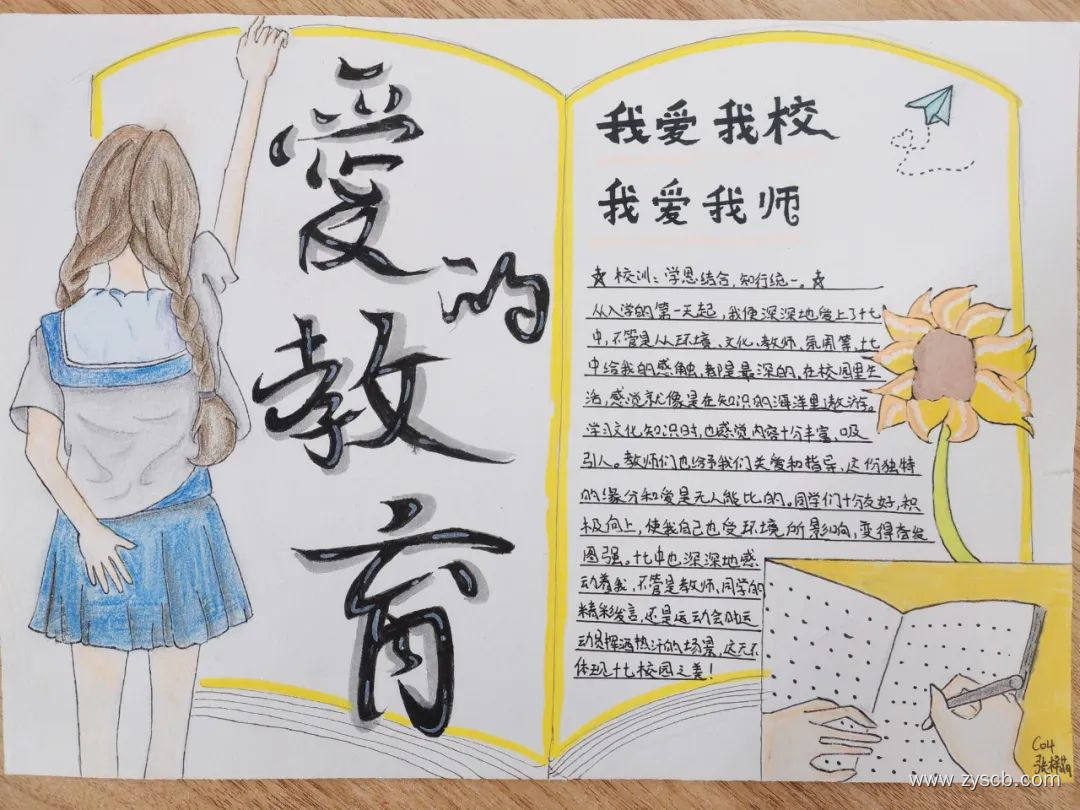 爱
的
教
育
我爱我校
我爱我师
☆ 校训：学思结合，知行统一。☆
从入学的第一天起，我便深深地爱上了十七
中，不管是从环境、文化、教师、氛围等，十七
中给我的感触，都是最深的，在校园里生
活，感觉就像是在知识的海洋里遨游。
学习文化知识时，也感觉内容十分丰富，吸
引人。教师们也给予我们关爱和指导，这份独特
的缘分和爱是无人能比的。同学们十分友好，积
极向上，使我自己也受环境所影响，变得奋发
图强。十七中也深深地感
动着我，不管是教师、同学的
精彩发言，还是运动会的运
动员挥洒热汗的场景，这无不
体现十七校园之美！
C04
www.zyscb.com